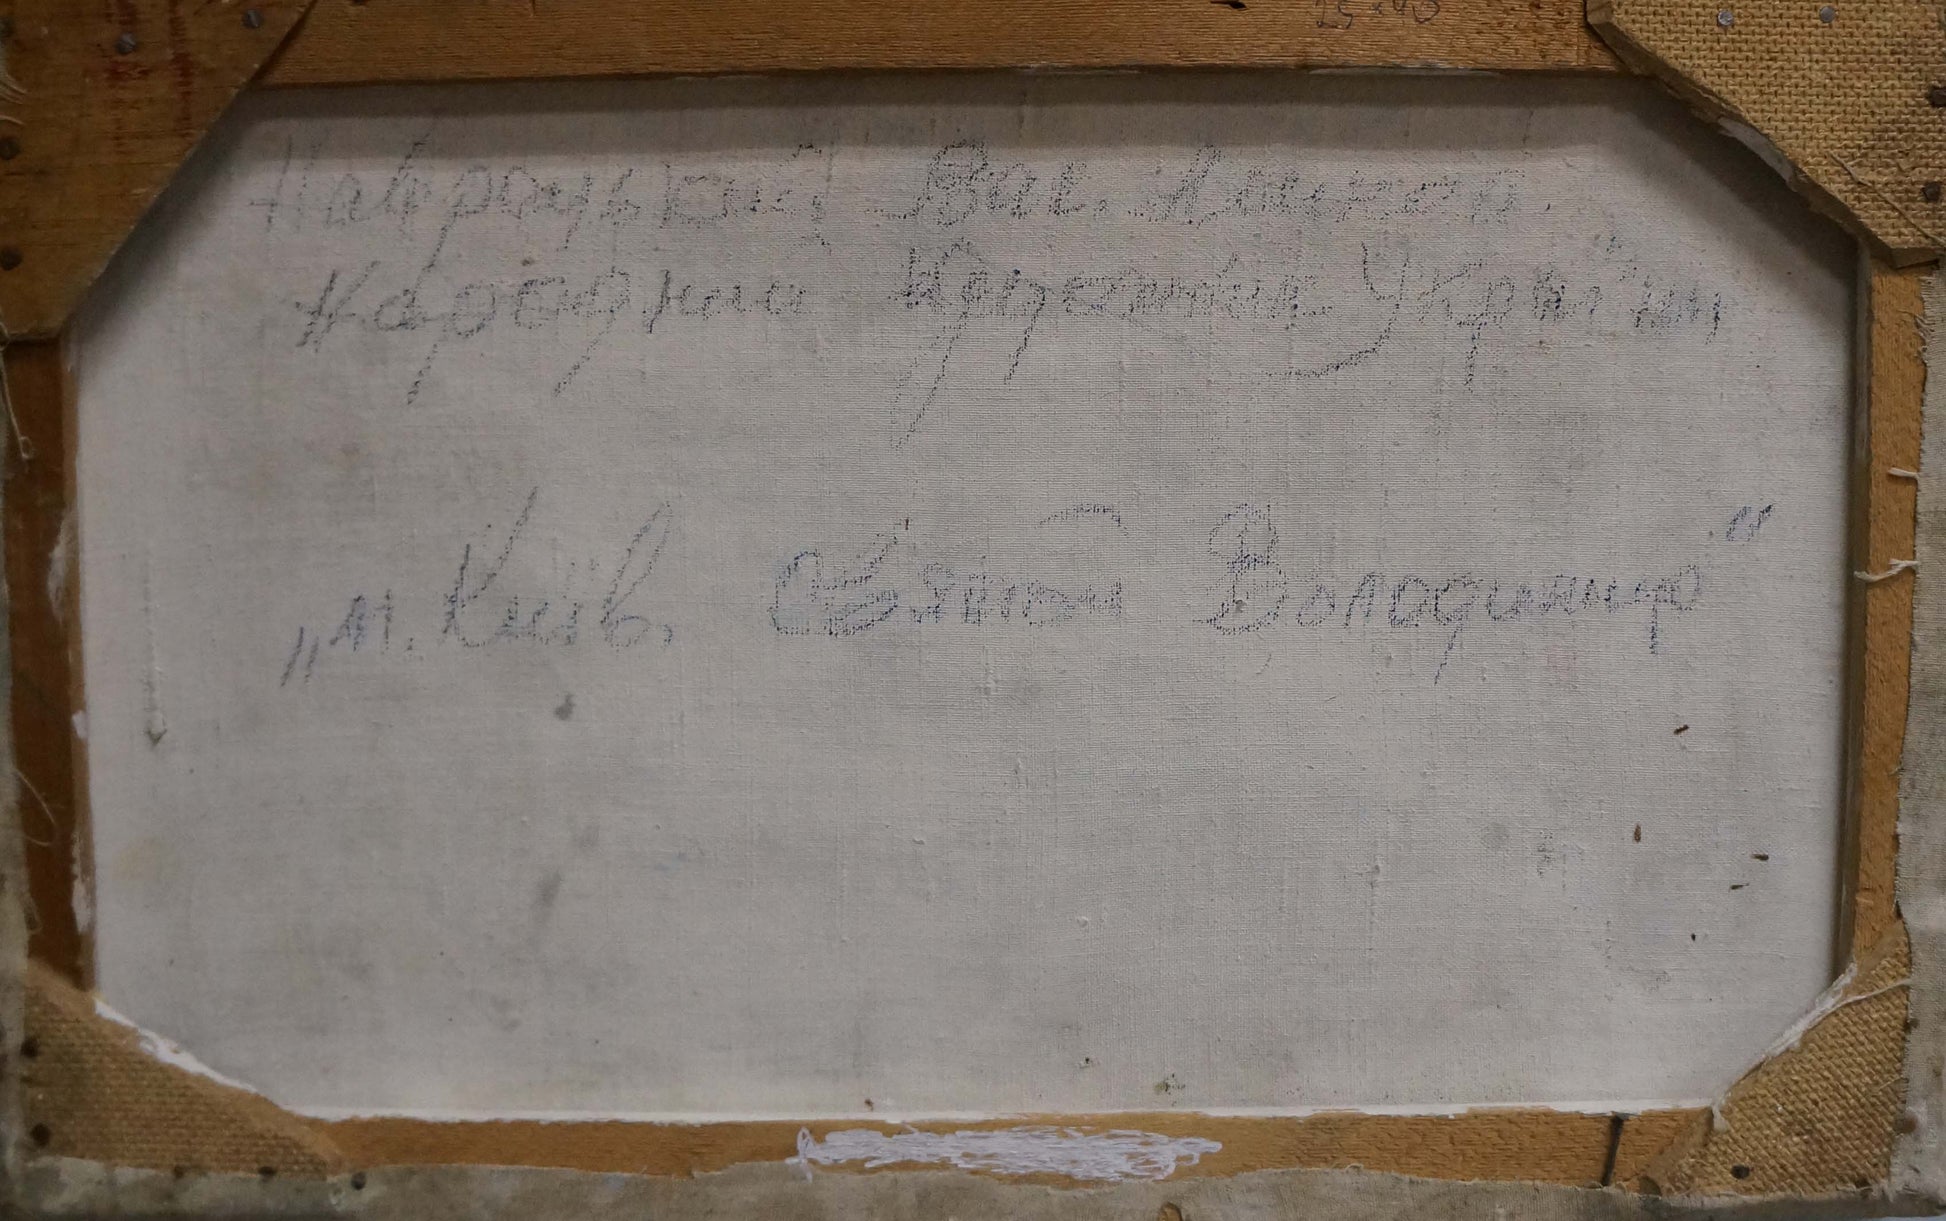 25×40
Навроцький Вас. Аликов.
Народний Художник України
„м. Київ. Святой Володимир“